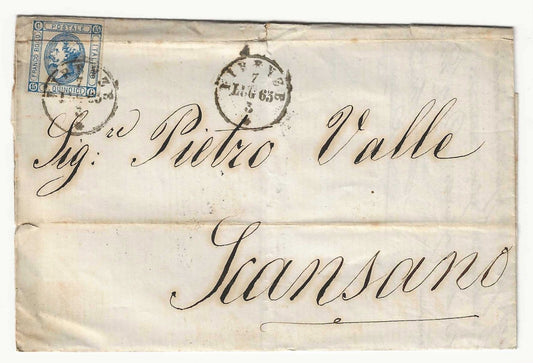 FRANCO BOLLO
POSTALE
ITALIANO
C. QUINDICI
LIVORNO
7
LUG 63
3
Sig.re Pietro Valle
Scansano